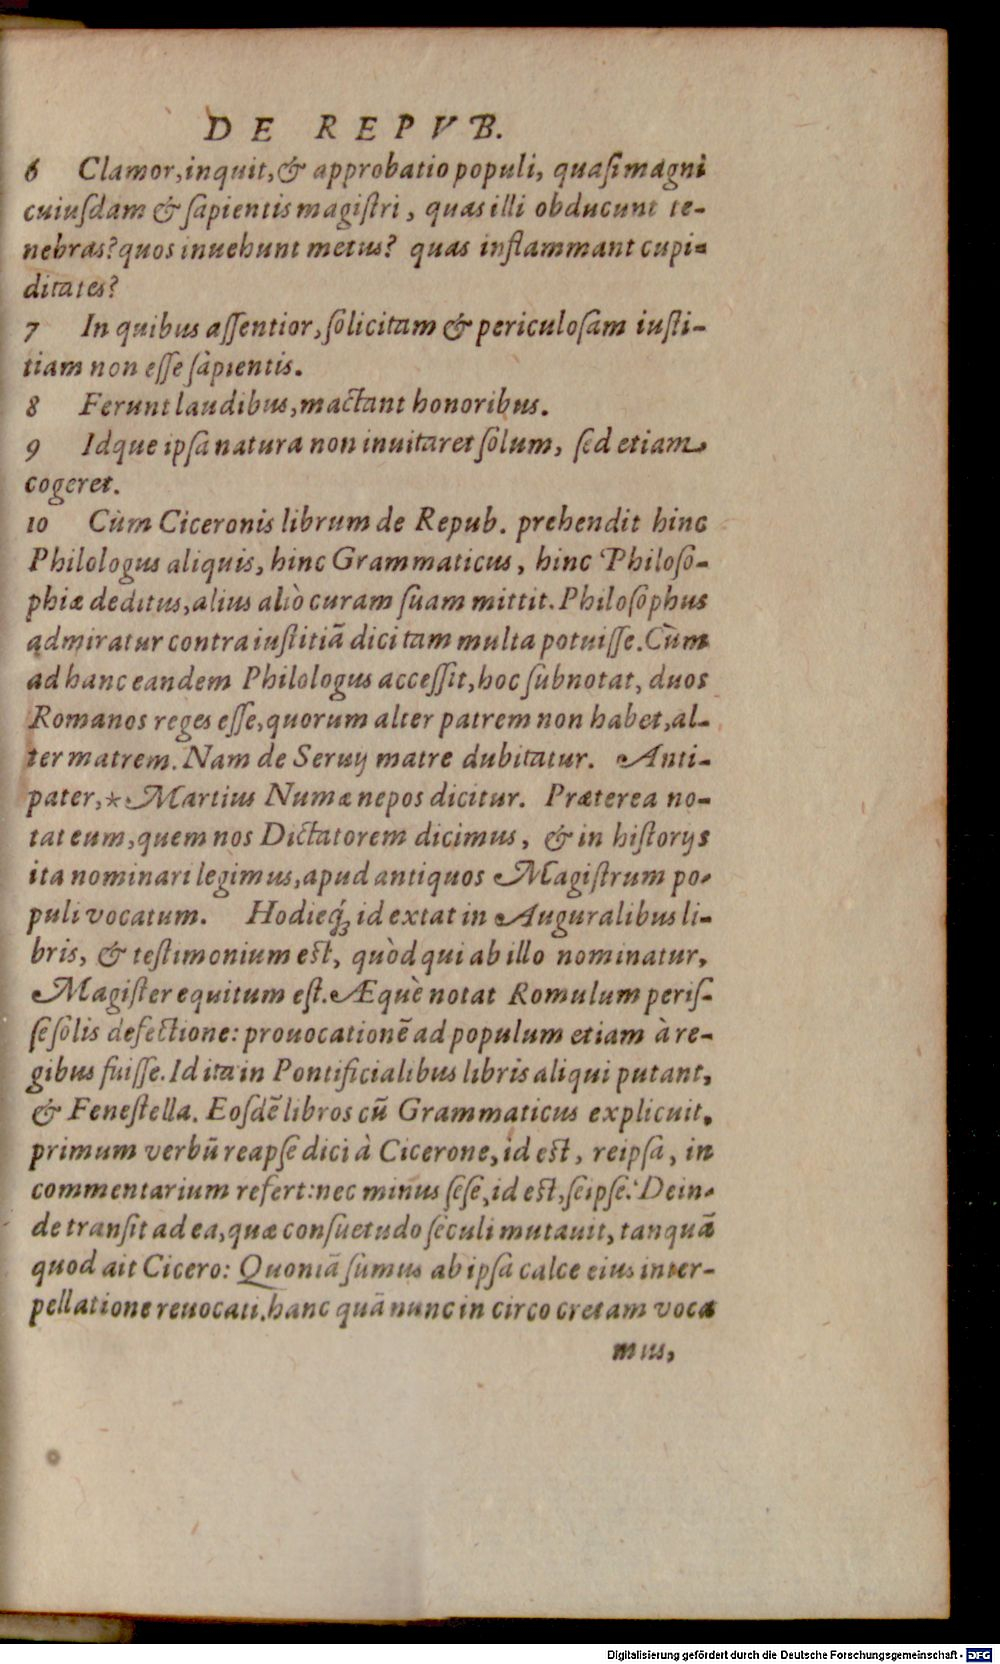 DE REPVB.
6 Clamor, inquit, & approbatio populi, quasi magni
cuiuſdam & ſapientis magiſtri, quas illi obducunt te-
nebras? quos inuehunt metus? quas inflammant cupi-
ditates?
7 In quibus aſſentior, ſolicitam & periculoſam iuſti-
tiam non eſſe ſapientis.
8 Ferunt laudibus, mactant honoribus.
9 Idque ipſa natura non inuitaret ſolum, ſed etiam
cogeret.
10 Cùm Ciceronis librum de Repub. prehendit hinc
Philologus aliquis, hinc Grammaticus, hinc Philoſo-
phiæ deditus, alius aliò curam ſuam mittit. Philoſophus
admiratur contra iuſtitiã dici tam multa potuiſſe. Cùm
ad hanc eandem Philologus acceſſit, hoc ſubnotat, duos
Romanos reges eſſe, quorum alter patrem non habet, al-
ter matrem. Nam de Seruij matre dubitatur. Anti-
pater, * Martius Numæ nepos dicitur. Præterea no-
tat eum, quem nos Dictatorem dicimus, & in hiſtorijs
ita nominari legimus, apud antiquos Magiſtrum po-
puli vocatum. Hodieq́; id extat in Auguralibus li-
bris, & teſtimonium eſt, quòd qui ab illo nominatur,
Magiſter equitum eſt. Æquè notat Romulum periſ-
ſe ſolis defectione: prouocationẽ ad populum etiam à re-
gibus fuiſſe. Id ita in Pontificialibus libris aliqui putant,
& Feneſtella. Eoſdẽ libros cũ Grammaticus explicuit,
primum verbũ reapſe dici à Cicerone, id eſt, reipſa, in
commentarium refert: nec minus ſeſe, id eſt, ſeipſe. Dein-
de tranſit ad ea, quæ conſuetudo ſeculi mutauit, tanquã
quod ait Cicero: Quoniã ſumus ab ipſa calce eius inter-
pellatione reuocati. hanc quã nunc in circo cretam voca
mus,
Digitalisierung gefördert durch die Deutsche Forschungsgemeinschaft - DFG